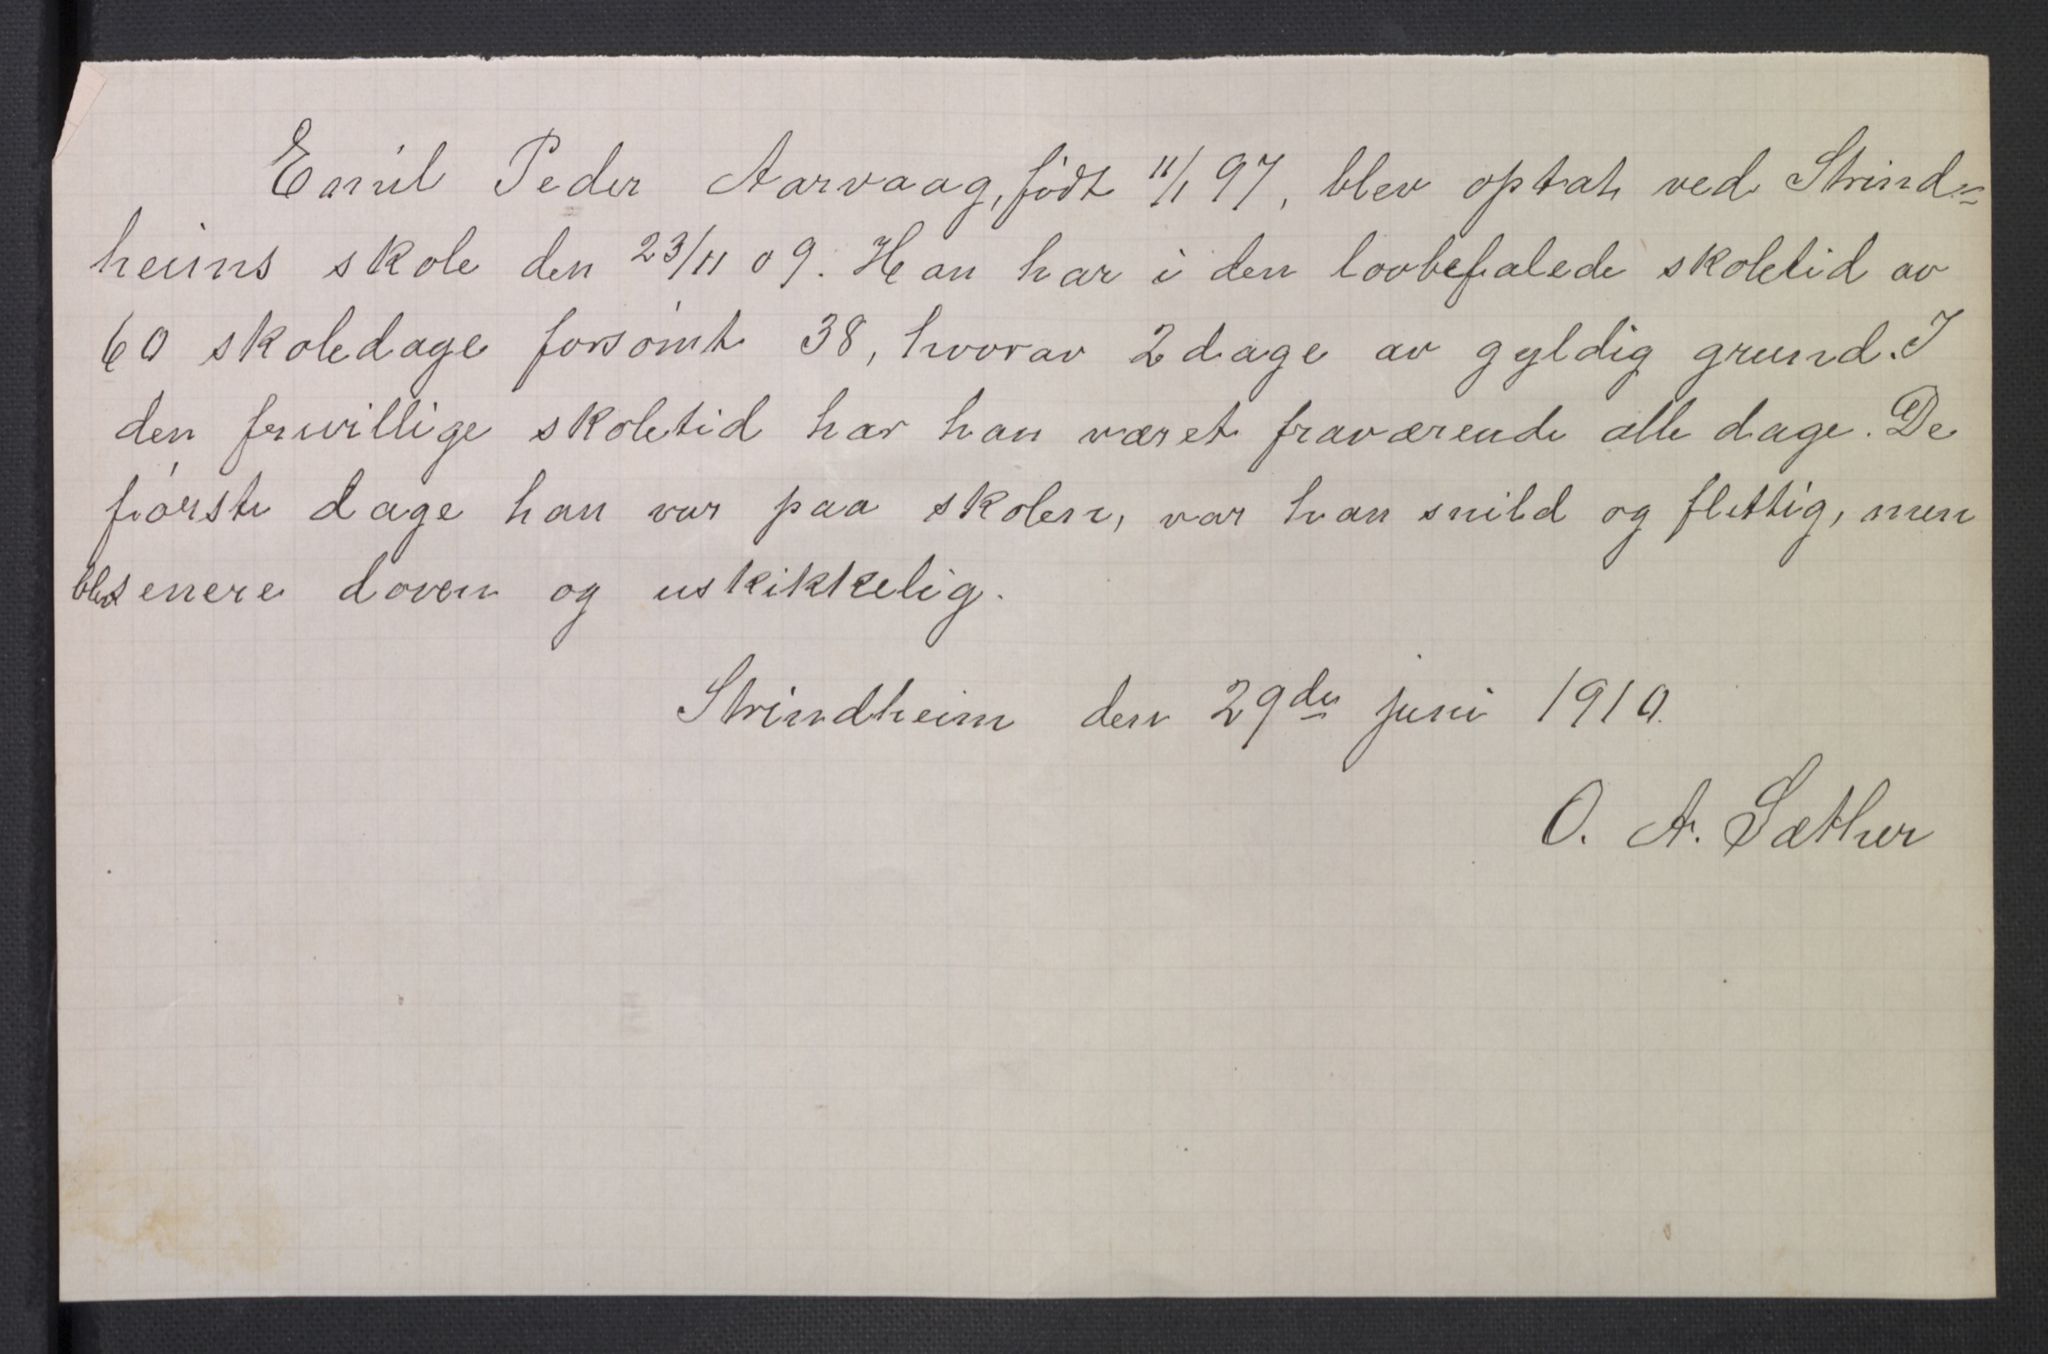 Emil Peder Aarvaag, født 11/1 97, blev optat ved Strind-
heims skole den 23/11 09. Han har i den lovbefalede skoletid av
60 skoledage forsømt 38, hvorav 2 dage av gyldig grund. I
den frivillige skoletid har han været fraværende alle dage. De
første dage han var paa skolen, var han snild og flittig, men
blev senere doven og uskikkelig.
Strindheim den 29de juni 1910.
O. A. Sæther